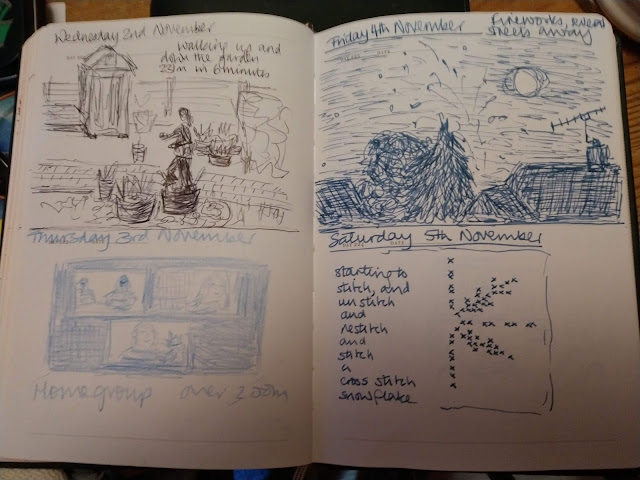 Wednesday 2nd November
Walking up and
down the garden
in 6 minutes
Thursday 3rd November
Homegroup over zoom
Friday 4th November
fireworks, several
streets away
Saturday 5th November
DATE
starting to
stitch, and
unstitch
and
restitch
and
stitch
a
cross stitch
snowflake